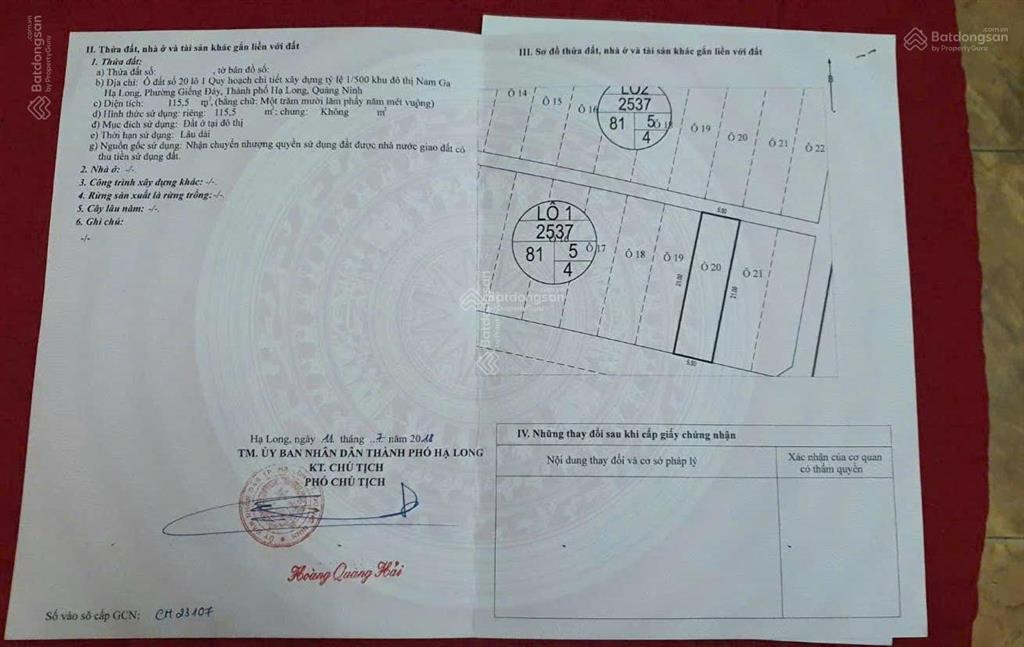 II. Thửa đất, nhà ở và tài sản khác gắn liền với đất
1. Thửa đất:
a) Thửa đất số: , tờ bản đồ số:
b) Địa chỉ: Ô đất số 20 lô 1 Quy hoạch chi tiết xây dựng tỷ lệ 1/500 khu đô thị Nam Ga
Hạ Long, Phường Giếng Đáy, Thành phố Hạ Long, Quảng Ninh
c) Diện tích: 115,5 m², (bằng chữ: Một trăm mười lăm phẩy năm mét vuông)
d) Hình thức sử dụng: riêng: 115,5 m²; chung: Không m²
đ) Mục đích sử dụng: Đất ở tại đô thị
e) Thời hạn sử dụng: Lâu dài
g) Nguồn gốc sử dụng: Nhận chuyển nhượng quyền sử dụng đất được nhà nước giao đất có
thu tiền sử dụng đất.
2. Nhà ở: -/-
3. Công trình xây dựng khác: -/-
4. Rừng sản xuất là rừng trồng: -/-
5. Cây lâu năm: -/-
6. Ghi chú:
-/-
Hạ Long, ngày 11 tháng 7 năm 2018
TM. ỦY BAN NHÂN DÂN THÀNH PHỐ HẠ LONG
KT. CHỦ TỊCH
PHÓ CHỦ TỊCH
Hoàng Quang Hải
Số vào sổ cấp GCN: CH 23107
III. Sơ đồ thửa đất, nhà ở và tài sản khác gắn liền với đất
B
Ô 14
Ô 15
Ô 16
LÔ2
2537
81 5 4
Ô 18
Ô 19
Ô 20
Ô 21
Ô 22
LÔ 1
2537
81 5 4
Ô 17
Ô 18
Ô 19
Ô 20
Ô 21
5.50
21.00
21.00
5.50
IV. Những thay đổi sau khi cấp giấy chứng nhận
Nội dung thay đổi và cơ sở pháp lý
Xác nhận của cơ quan
có thẩm quyền
Batdongsan.com.vn
by PropertyGuru
Batdongsan.com.vn
by PropertyGuru
Batdongsan
Batdongsan
by PropertyGuru